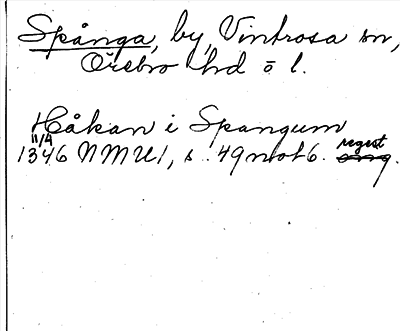 Spånga, by, Vintrosa sn,
Örebro hd ö l.
Håkan i Spangum
11/4
1346 NMU1, s. 49 not 6. regest